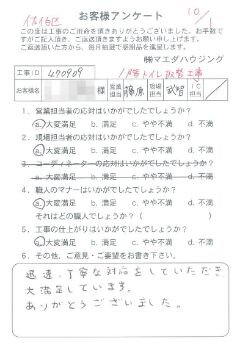 佐伯区
お客様アンケート
10/1
この度は工事のご用命を頂きありがとうございました。お手数で
すがご記入頂き、ご返送頂きますようお願い申し上げます。
ご返送頂いた方から、毎月抽選で粗品を進呈します。
㈱マエダハウジング
工事ID 490909 1階トイレ改装工事
お客様名 様 営業担当 藤原 現場担当 武田 IC担当
1. 営業担当者の応対はいかがでしたでしょうか？
a. 大変満足 b. 満足 c. やや不満 d. 不満
2. 現場担当者の応対はいかがでしたでしょうか？
a. 大変満足 b. 満足 c. やや不満 d. 不満
3. コーディネーターの応対はいかがでしたでしょうか？
a. 大変満足 b. 満足 c. やや不満 d. 不満
4. 職人のマナーはいかがでしたでしょうか？
a. 大変満足 b. 満足 c. やや不満 d. 不満
それはどの職人でしょうか？（ ）
5. 工事の仕上がりはいかがでしたでしょうか？
a. 大変満足 b. 満足 c. やや不満 d. 不満
6. その他、ご意見・ご要望をお書き下さい。
迅速、丁寧な対応をしていただき
大満足しています。
ありがとうございました。